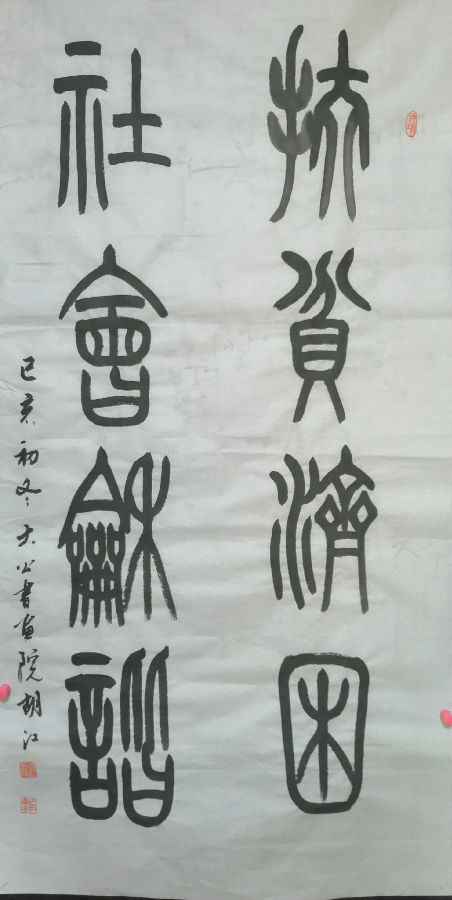 扶貧濟困
社會龢諧
己亥初冬大公書画院胡江